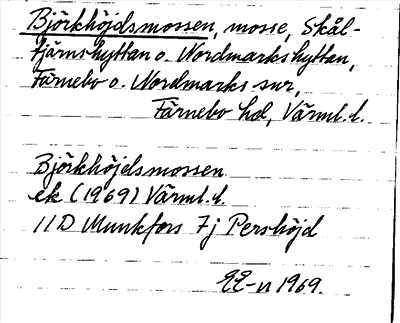 Björkhöjdsmossen, mosse, Skål-
tjärnshyttan o. Nordmarkshyttan,
Färnebo o. Nordmarks snr,
Färnebo hd, Värml. l.
Björkhöjdsmossen
ek (1969) Värml. l.
11D Munkfors 7j Pershöjd
1969.